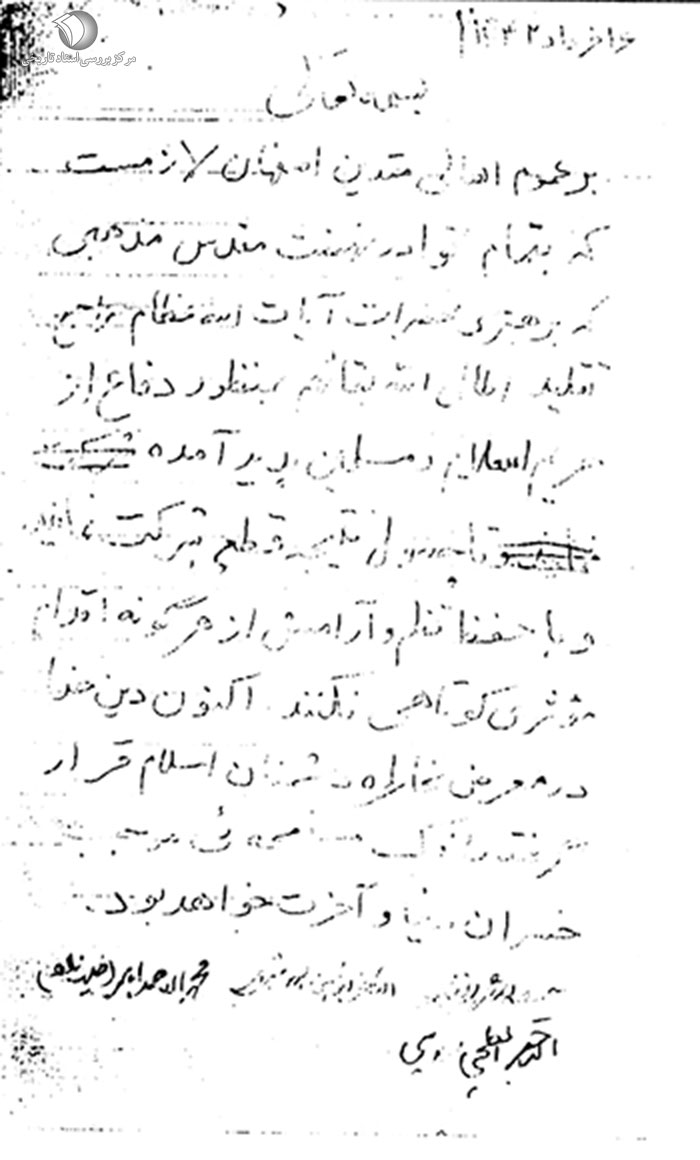 مرکز بررسی اسناد تاریخی
۱۶ خرداد ۱۳۴۲
بسمه تعالی
بر عموم اهالی متدین اصفهان لازمست
که بتمام قوا در نهضت مقدس مذهبی
که برهبری حضرات آیات الله عظام مراجع
تقلید اطال الله بقائهم بمنظور دفاع از
حریم اسلام و مسلمین پدید آمده
و تا حصول نتیجه قطعی شرکت نمایند
و با حفظ نظم و آرامش از هرگونه اقدام
مؤثری کوتاهی نکنند. اکنون دین خدا
در معرض مخاطره دشمنان اسلام قرار
گرفته و اندک مسامحه ئی موجب
خسران دنیا و آخرت خواهد بود.